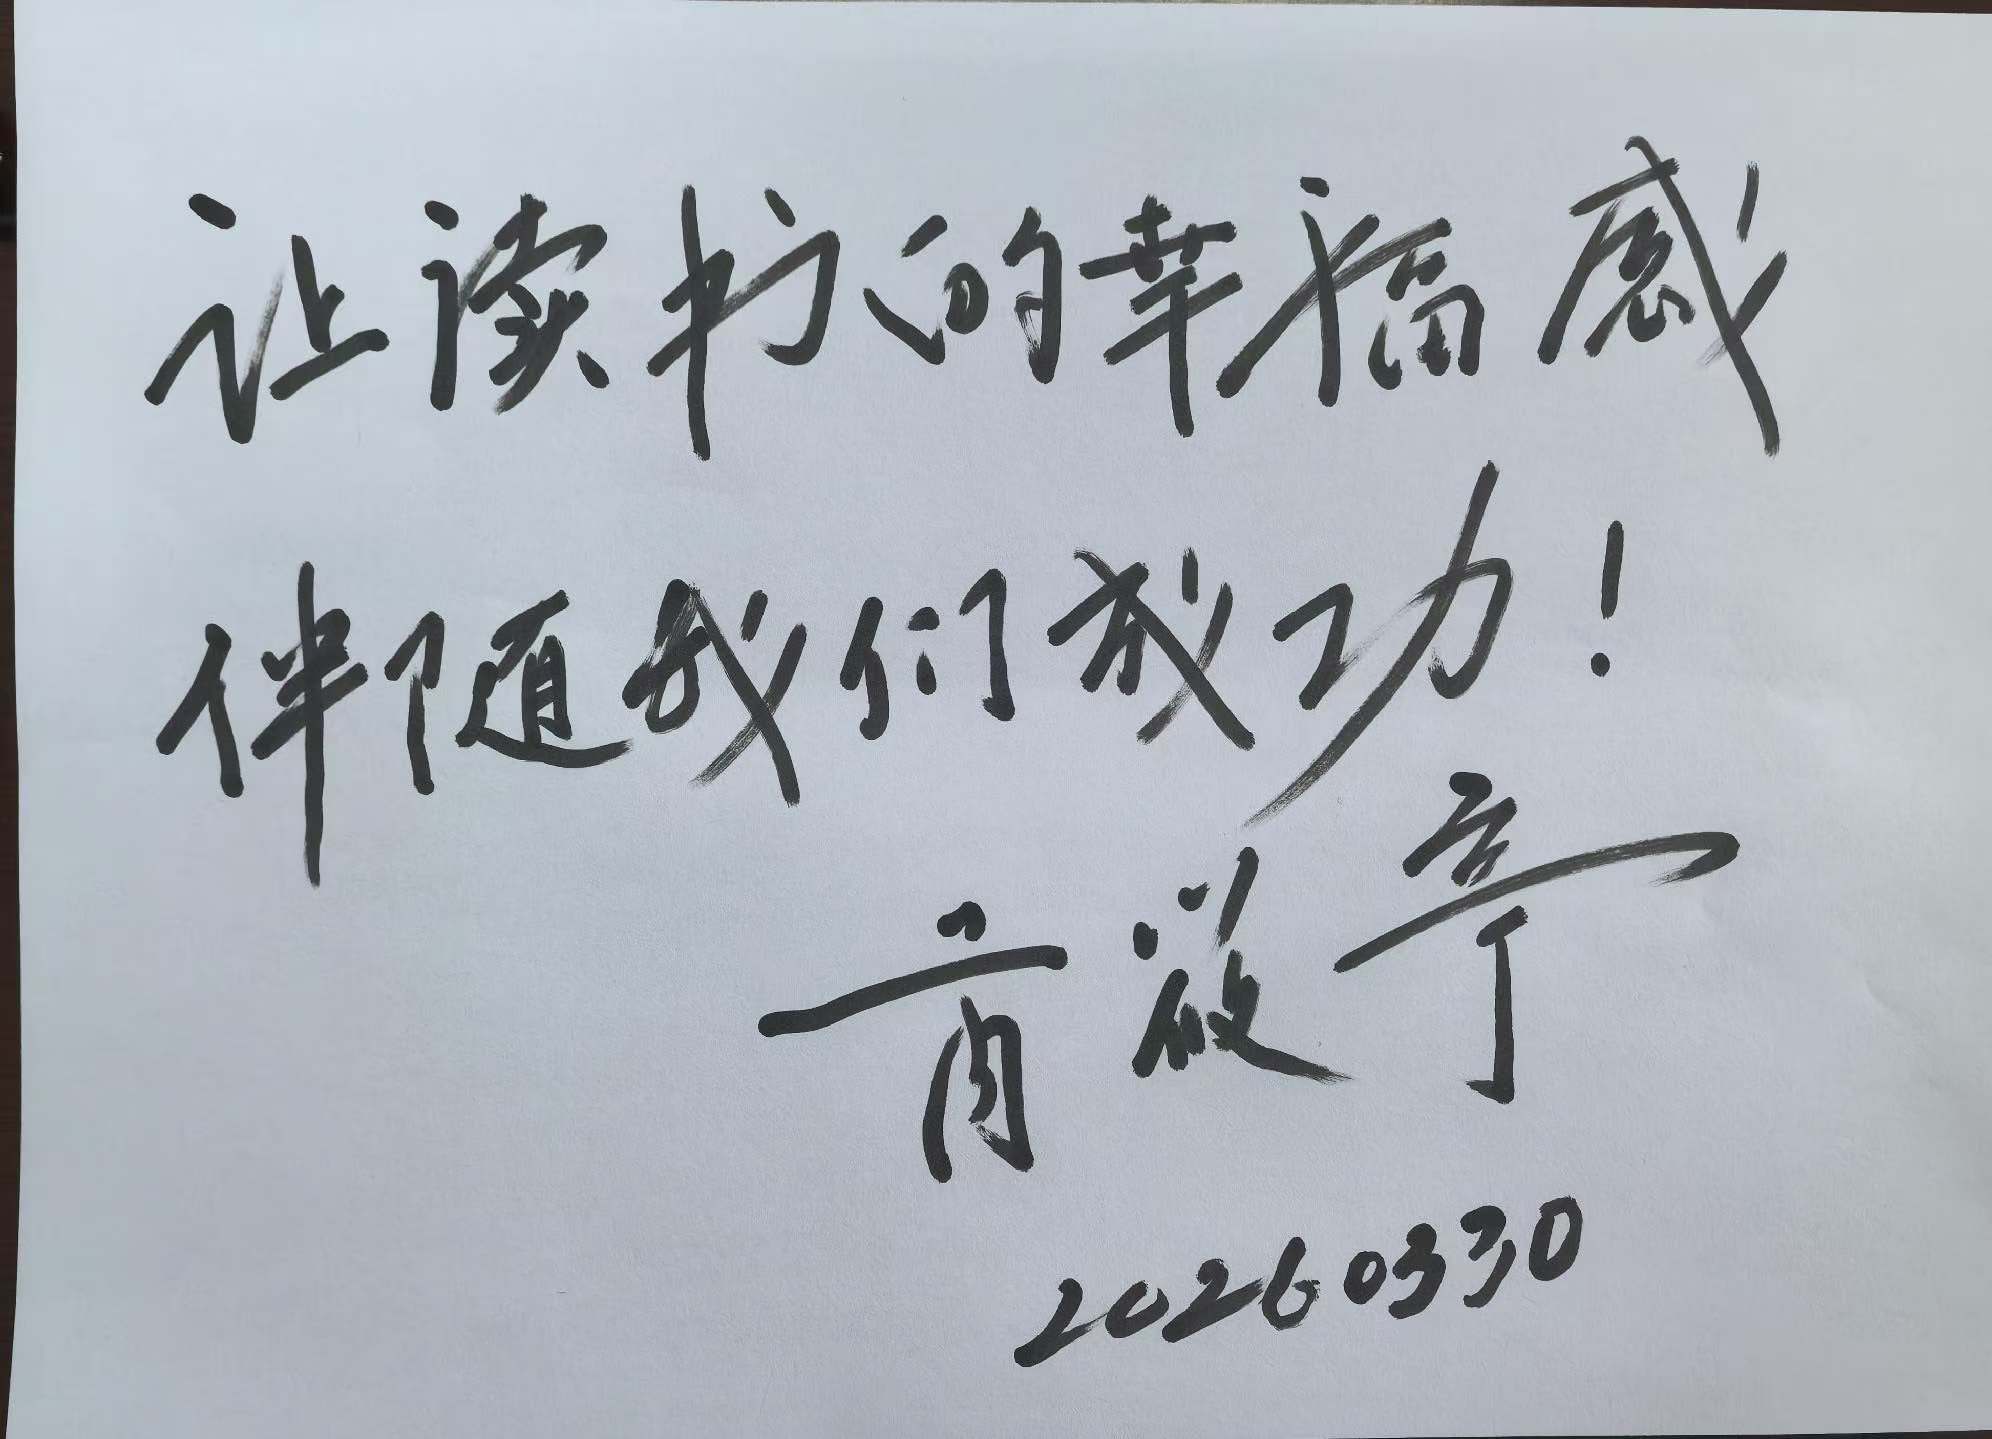 让读书的幸福感
伴随我们成功！
20260330